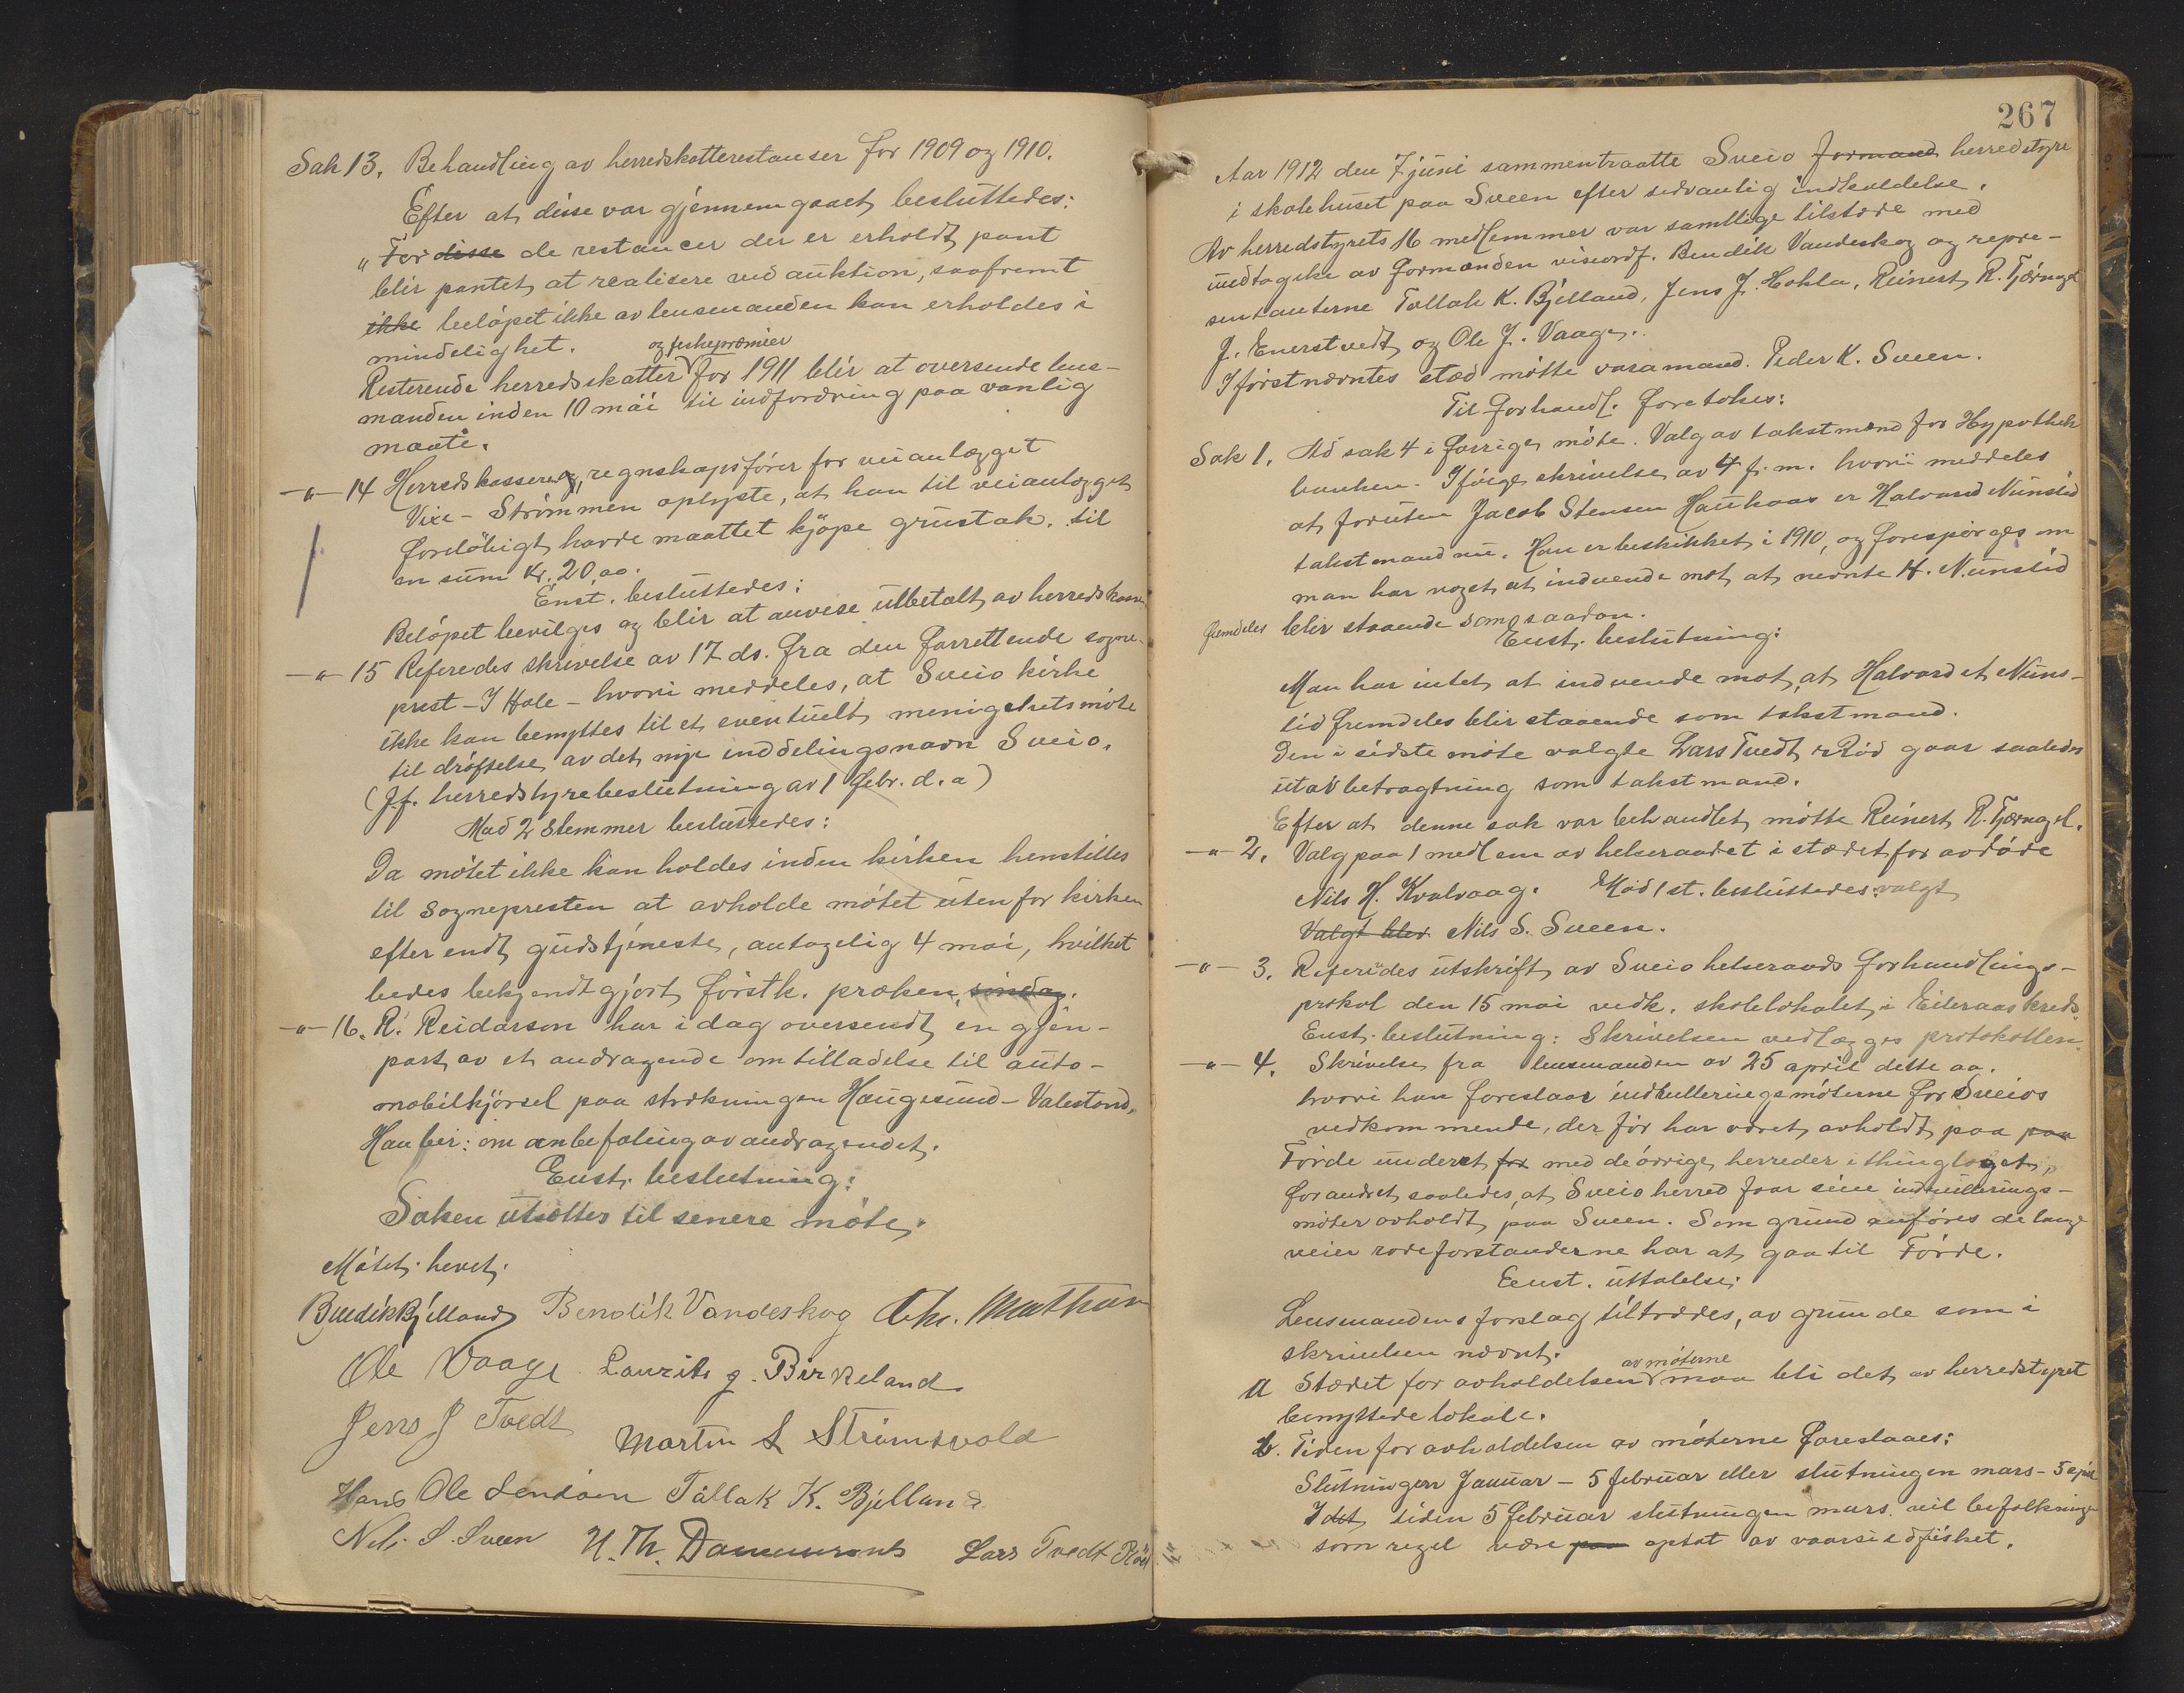 Sak 13. Behandling av herredskatterestanser for 1909 og 1910.
Efter at disse var gjennemgaaet, besluttedes:
"For disse de restancer der er erholdt pant
blir pantet at realisere ved auktion, saafremt
ikke beløpet ikke av lensmanden kan erholdes i
mindelighet.
og fiskepræmier
Resterende herredsskatter for 1911 blir at oversende lens-
manden inden 10 mai til indfordring paa vanlig
maate.
-"- 14 Herredskasserer og regnskapsfører for veianlægget
Vixe - Strømmen oplyste, at han til veianlægget
foreløbigt havde maattet kjøpe grustak til
en sum kr. 20,00.
Enst. besluttedes:
Beløpet bevilges og blir at anvise utbetalt av herredskassen
-"- 15 Referedes skrivelse av 17 ds. fra den forrettende sogne-
prest - I Hole - hvori meddeles, at Sveio kirke
ikke kan benyttes til et eventuelt menighetsmøte
til drøftelse av det nye inddelingsnavn Sveio.
(Jf. herredstyrebeslutning av 1 febr. d. a)
Mod 2 stemmer besluttedes:
Da møtet ikke kan holdes inden kirken henstilles
til sognepresten at avholde møtet utenfor kirken
efter endt gudstjeneste, antagelig 4 mai, hvilket
bedes bekjendtgjort førstk. præken, søndag.
-"- 16. R. Reidarson har idag oversendt en gjen-
part av et andragende om tilladelse til auto-
mobilkjørsel paa strækningen Haugesund - Valestrand.
Han ber: om anbefaling av andragendet.
Enst. beslutning:
Saken utsættes til senere møte.
Møtet hevet.
Bendik Bjelland Bendik Vandeskog Chr. Mathum
Ole Vaage Laurits J. Birkeland
Jens J Tvedt Martin L Strømsvold
Hans Ole Lendøen Tallak K. Bjelland
Nils S. Sveen N. Th. Dommersnes Lars Tvedt Rød
267
Aar 1912 den 7 juni sammentraatte Sveio formand herredstyre
i skolehuset paa Sveen efter sedvanlig indkaldelse.
Av herredstyrets 16 medlemmer var samtlige tilstede med
undtagelse av formanden viseordf. Bendik Vandeskog og repre-
sentanterne Tallak K. Bjelland, Jens J. Hokla, Reinert R. Tjernagel
J. Enerstvedt og Ole J. Vaage.
I førstnævntes sted møtte varamand. Peder K. Sveen.
Til forhandl. foretokes:
Sak 1. Ad sak 4 i forrige møte. Valg av takstmænd for Hypothek
banken. Ifølge skrivelse av 4 f. m. hvori meddeles
at foruten Jacob Stensen Haukaas er Halvard Nunslid
takstmand nu. Han er beskikket i 1910, og forespørges om
man har noget at indvende mot, at nevnte H. Nunslid
fremdeles blir staaende som saadan.
Enst. beslutning:
Man har intet at indvende mot, at Halvard et Nuns-
lid fremdeles blir staaende som takstmand.
Den i sidste møte valgte Lars Tvedt Rød gaar saaledes
ut av betragtning som takstmand.
Efter at denne sak var behandlet, møtte Reinert R. Tjernagel.
-"- 2. Valg paa 1 medlem av helseraadet i stedet for avdøde
Nils H. Kvalvaag. Mod 1 st. besluttedes valgt
Valgt blev Nils S. Sveen.
-"- 3. Referides utskrift av Sveio helseraads forhandlings-
prokol den 15 mai vedk. skolelokalet i Eileraas kreds
Enst. beslutning: Skrivelsen vedlægges protokollen.
-"- 4. Skrivelse fra lensmanden av 25 april dette aa.
hvori han foreslaar indrulleringsmøterne for Sveios
vedkommende, der før har været avholdt paa paa
Førde under et for med de øvrige herreder i thinglaget,
forandret saaledes, at Sveio herred faar sine indrullerings-
møter avholdt paa Sveen. Som grund anføres de lange
veier rodeforstanderne har at gaa til Førde.
Enst. uttalelse:
Lensmandens forslag tiltrædes, av grunde som i
skrivelsen nævnt.
av møterne
a Stedet for avholdelsen maa bli det av herredstyret
benyttede lokale.
b. Tiden for avholdelsen av møterne foreslaaes:
Slutningen Januar - 5 februar eller slutningen mars - 5 april
I det tiden 5 februar slutningen mars vil befolkningen
som regel være paa optat av vaarsildfisket.